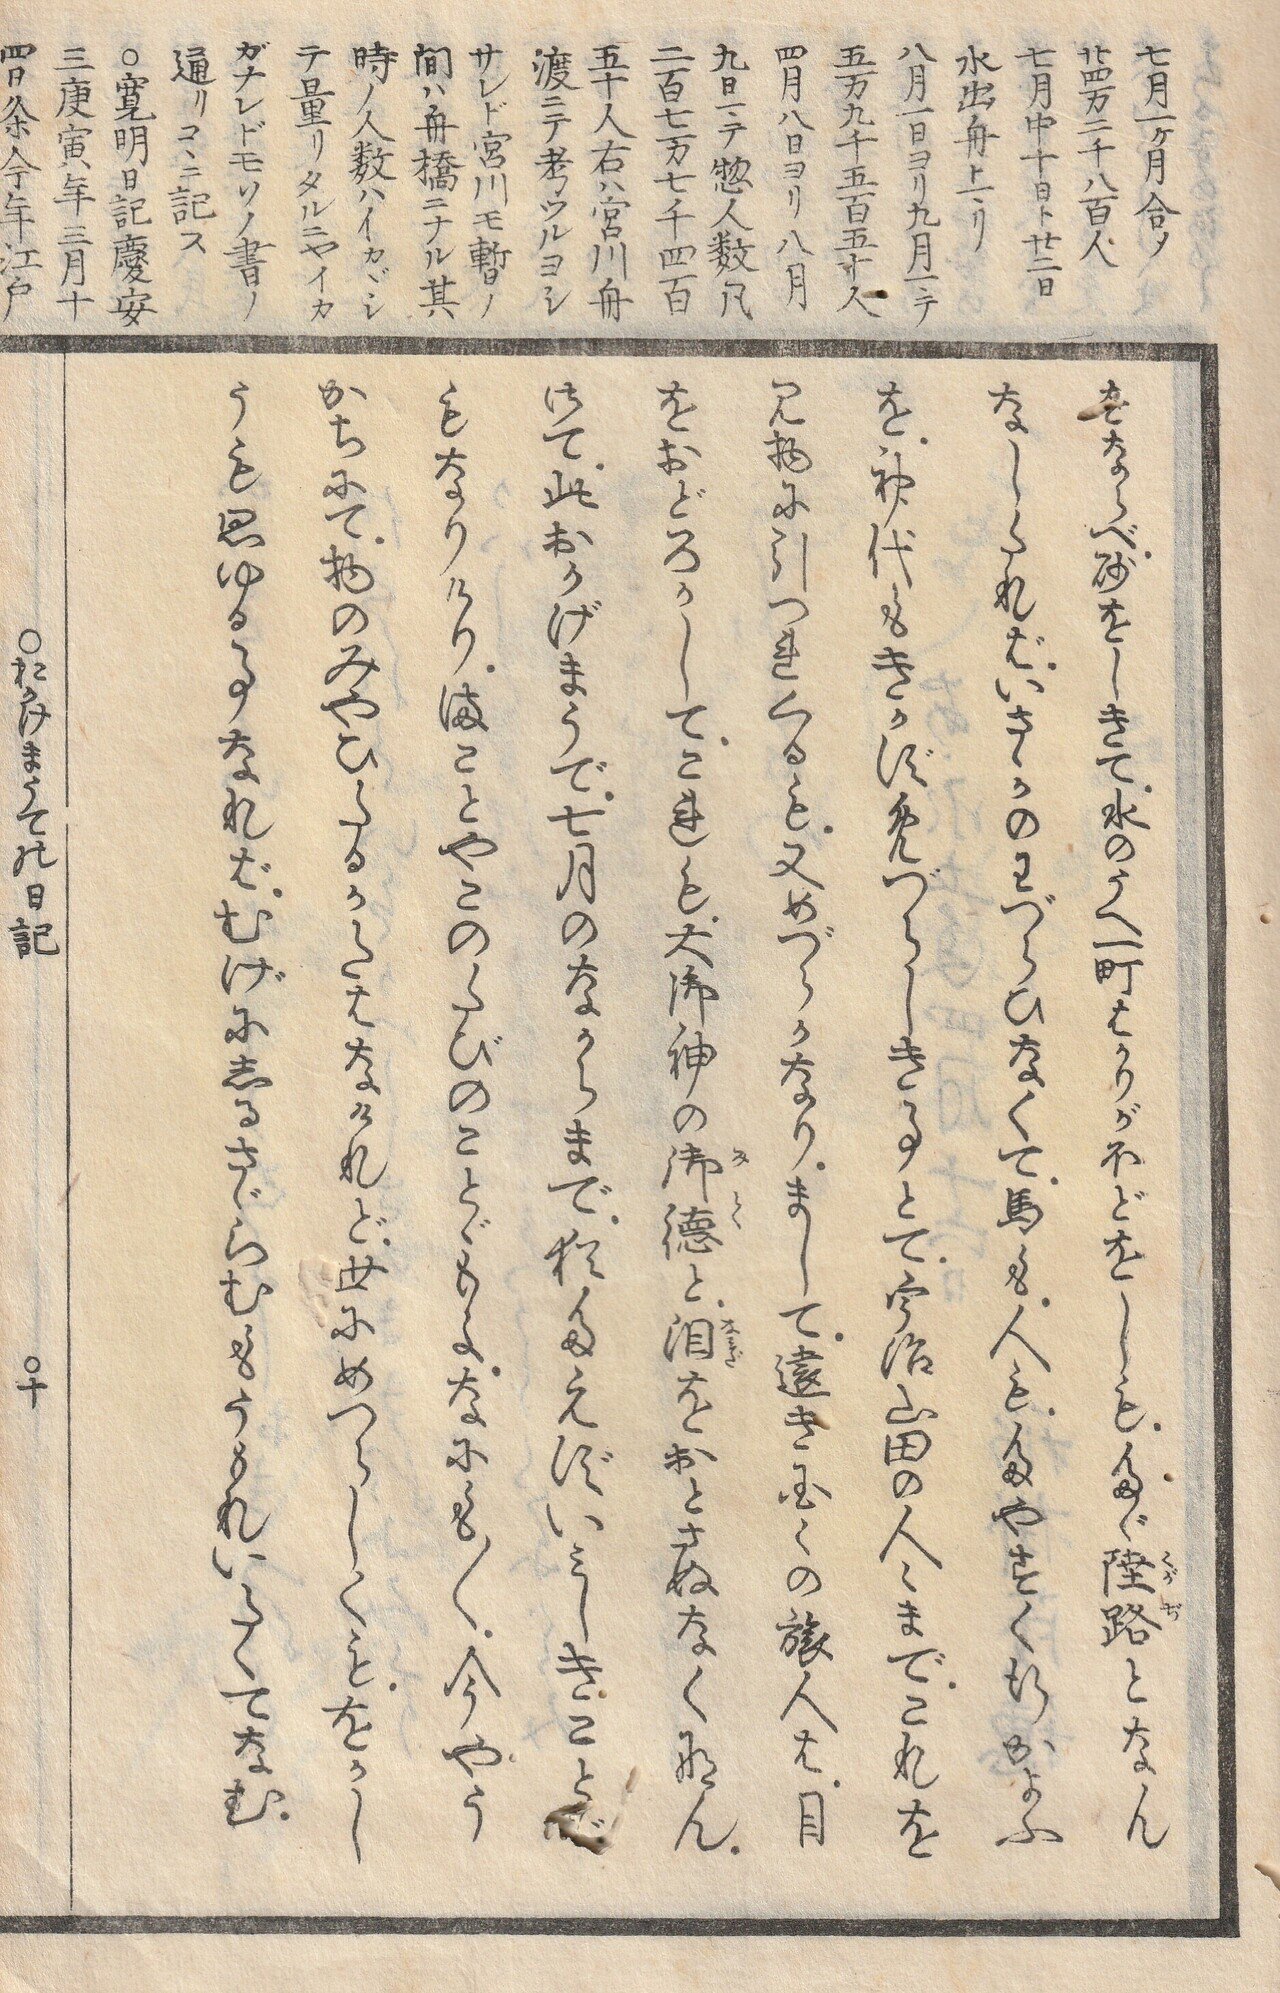 七月一ヶ月合〆
廿四万二千八百人
七月中十日ト廿二日
水出舟トヾリ
八月一日ヨリ九月マテ
五万九千五百五十人
四月八日ヨリ八月
九日マテ惣人数凡
二百七万七千四百
五十人右ハ宮川舟
渡ニテ考ウルヨシ
サレド宮川モ暫ノ
間ハ舟橋ニナル其
時ノ人数ハイカヾシ
テ量リタルニヤイカ
ガナレドモソノ書ノ
通リコヽニ記ス
○寛明日記慶安
三庚寅年三月十
四日条今年江戸
をならべ。砂をしきて。水のうへ一町ばかりがほどをしも。たゞ陸路となん
なしたれば。いさゝかのわづらひなくて。馬も。人も。たやすく行かよふ
を。神代もきかずめづらしき事とて。宇治山田の人々まで。これを
見物に引つれくるも。又めづらかなり。まして。遠き国々の旅人は。目
をおどろかして。これも。大御神の御徳と。泪をおとさぬなくなん。
さて。此おかげまうで。七月のなからまで。猶たえずいみしきことゞ
もなりけり。まことやこのたびのことゞもよ。なにも〳〵。今やう
かちにて。物のみやひたるかたはなけれど。世にめつらしくも。をかし
うも思ゆる事なれば。むげにしるさゞらむもうもれいたくてなむ。
○おかけまうての日記
○十